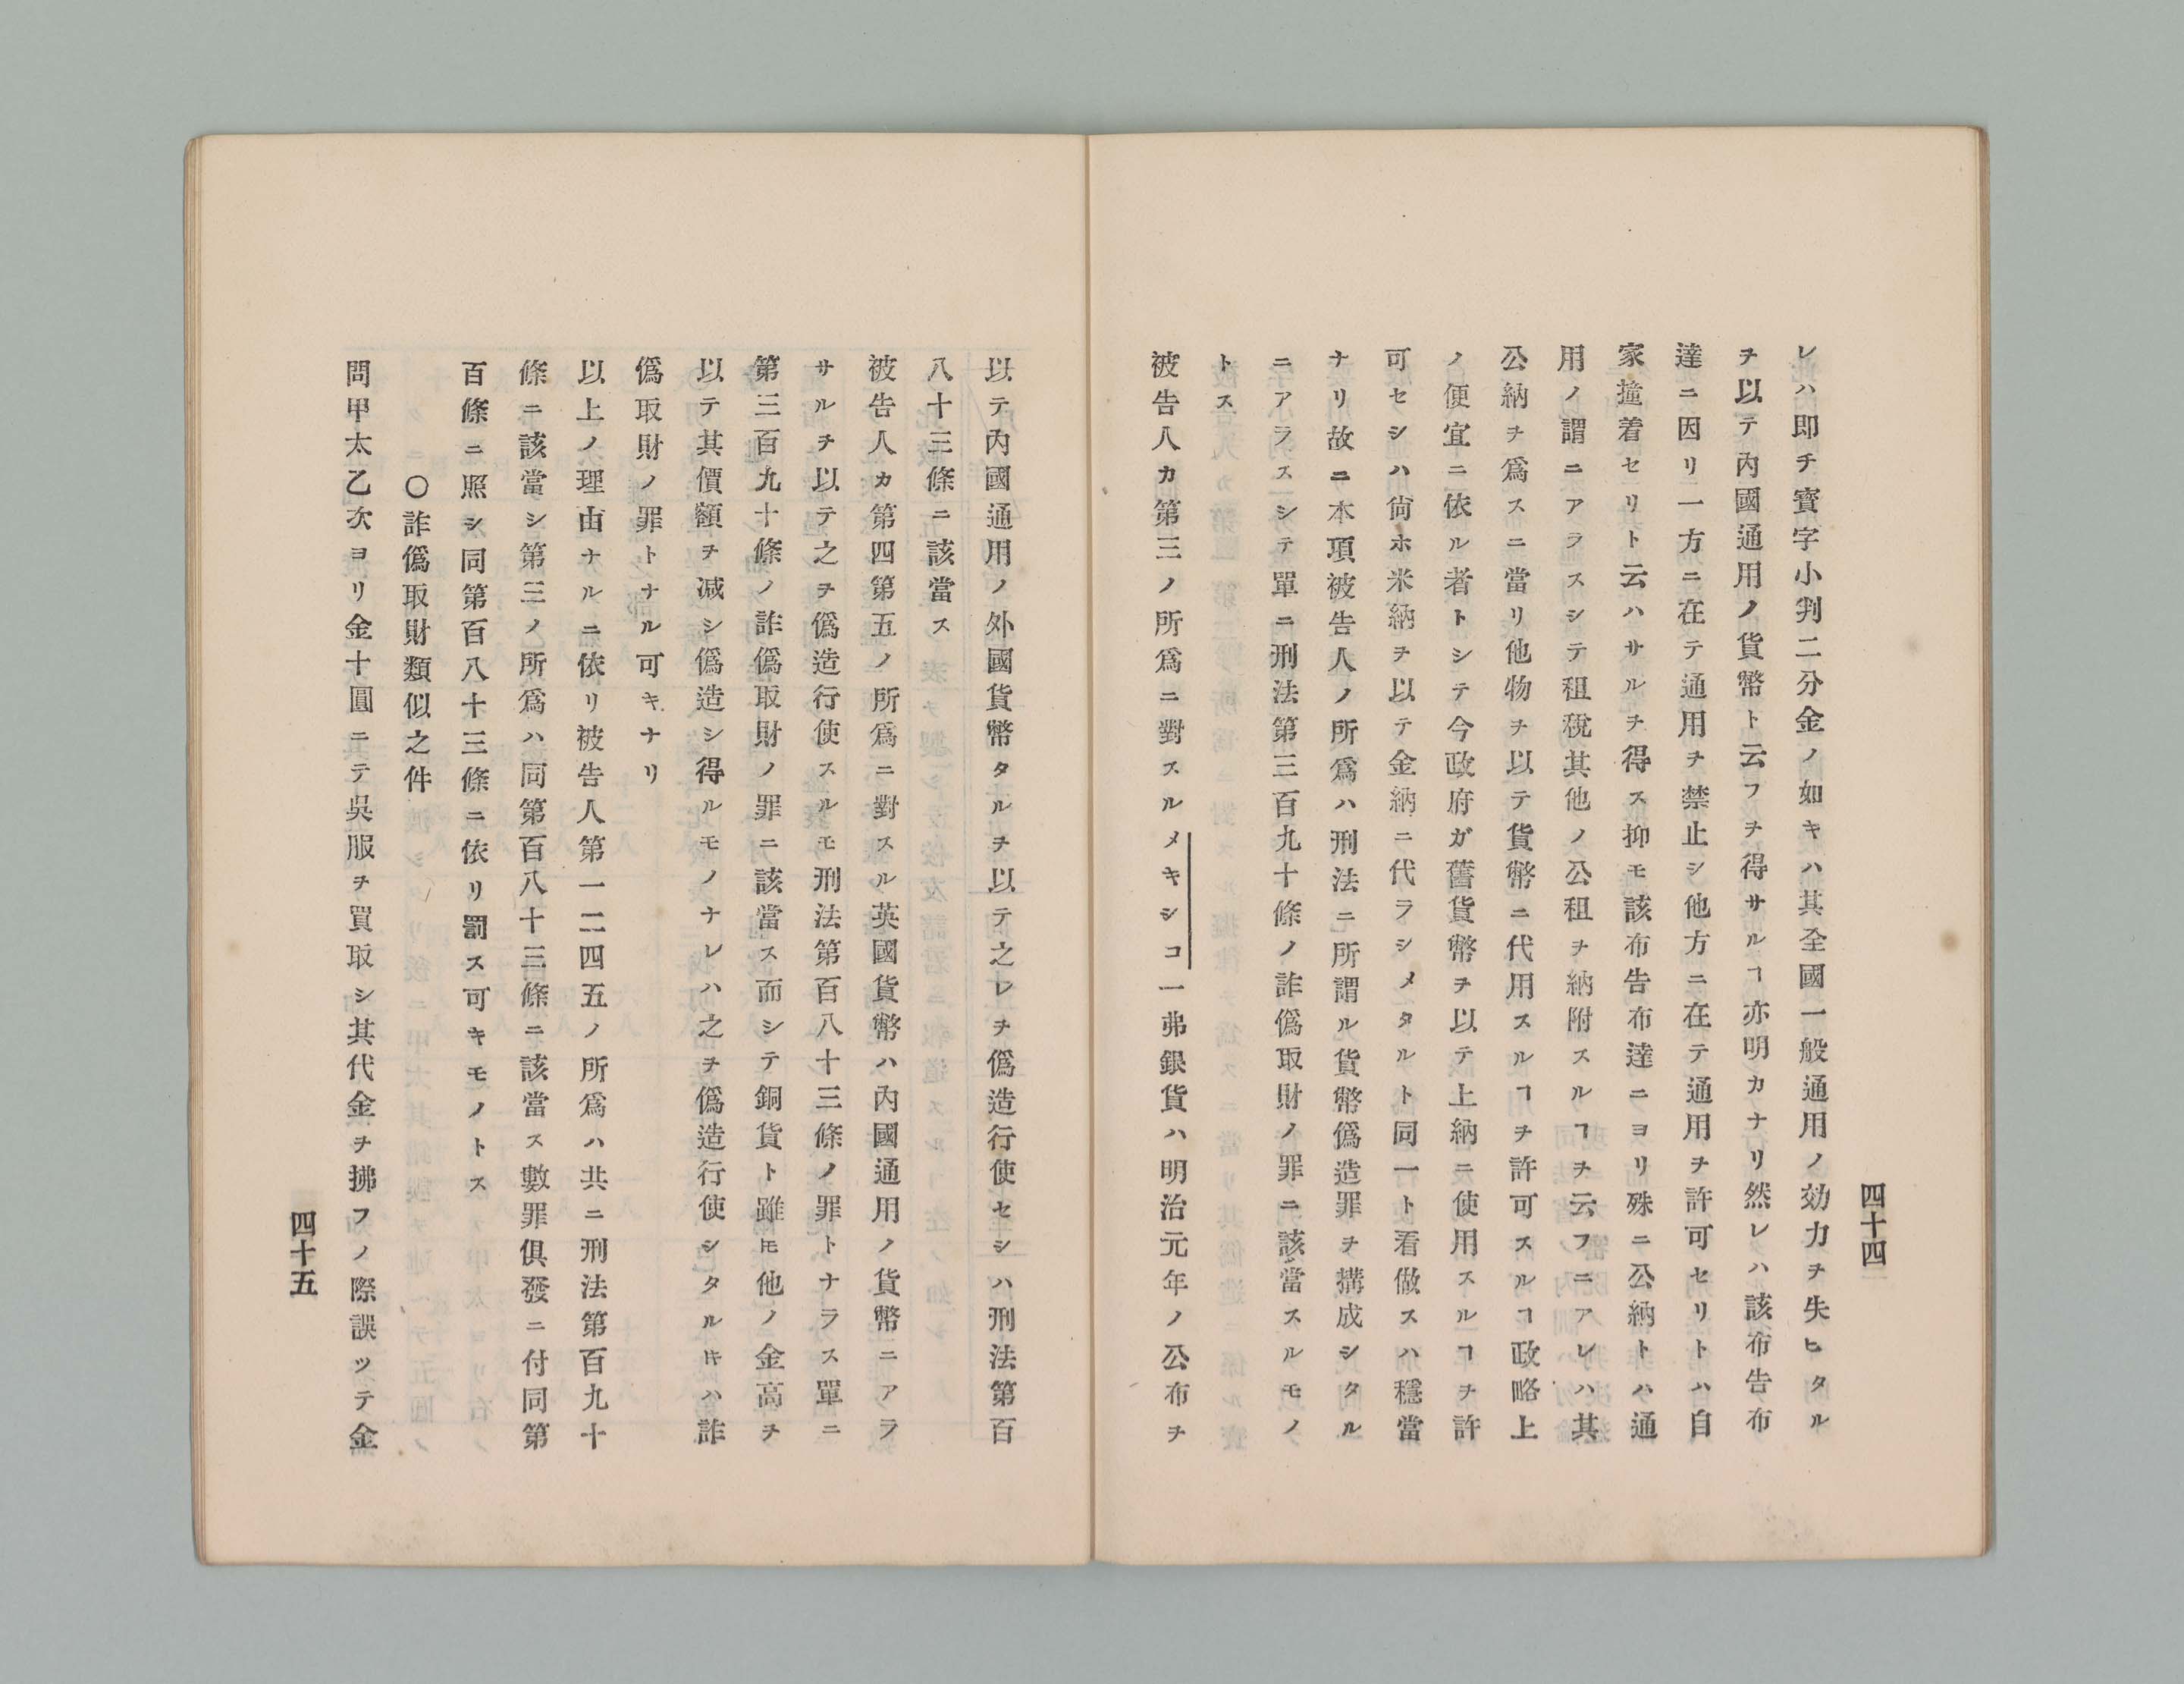 四十四
レハ即チ寳字小判二分金ノ如キハ其全國一般通用ノ効力ヲ失ヒタル
ヲ以テ內國通用ノ貨幣ト云フヲ得サルヿ亦明カナリ然レハ該布告布
達ニ因リ一方ニ在テ通用ヲ禁止シ他方ニ在テ通用ヲ許可セリトハ自
家撞着セリト云ハサルヲ得ス抑モ該布告布達ニヨリ殊ニ公納トハ通
用ノ謂ニアラスシテ租稅其他ノ公租ヲ納附スルヿヲ云フニアレハ其
公納ヲ爲スニ當リ他物ヲ以テ貨幣ニ代用スルヿヲ許可スルヿ政略上
ノ便宜ニ依ル者トシテ今政府ガ舊貨幣ヲ以テ上納ニ使用スルヿヲ許
可セシハ尙ホ米納ヲ以テ金納ニ代ラシメタルト同一ト看做スハ穩當
ナリ故ニ本項被告人ノ所爲ハ刑法ニ所謂ル貨幣僞造罪ヲ搆成シタル
ニアラスシテ單ニ刑法第三百九十條ノ詐僞取財ノ罪ニ該當スルモノ
トス
被告人カ第三ノ所爲ニ對スルメキシコ一弗銀貨ハ明治元年ノ公布ヲ
以テ內國通用ノ外國貨幣タルヲ以テ之レヲ僞造行使セシハ刑法第百
八十三條ニ該當ス
被告人カ第四第五ノ所爲ニ對スル英國貨幣ハ內國通用ノ貨幣ニアラ
サルヲ以テ之ヲ僞造行使スルモ刑法第百八十三條ノ罪トナラス單ニ
第三百九十條ノ詐僞取財ノ罪ニ該當ス而シテ銅貨ト雖モ他ノ金高ヲ
以テ其價額ヲ减シ僞造シ得ルモノナレハ之ヲ僞造行使シタルキハ詐
僞取財ノ罪トナル可キナリ
以上ノ理由ナルニ依リ被告人第一二四五ノ所爲ハ共ニ刑法第百九十
條ニ該當シ第三ノ所爲ハ同第百八十三條ニ該當ス數罪俱發ニ付同第
百條ニ照シ同第百八十三條ニ依リ罰ス可キモノトス
〇詐僞取財類似之件
問甲太乙次ヨリ金十圓ニテ吳服ヲ買取シ其代金ヲ拂フノ際誤ツテ金
四十五